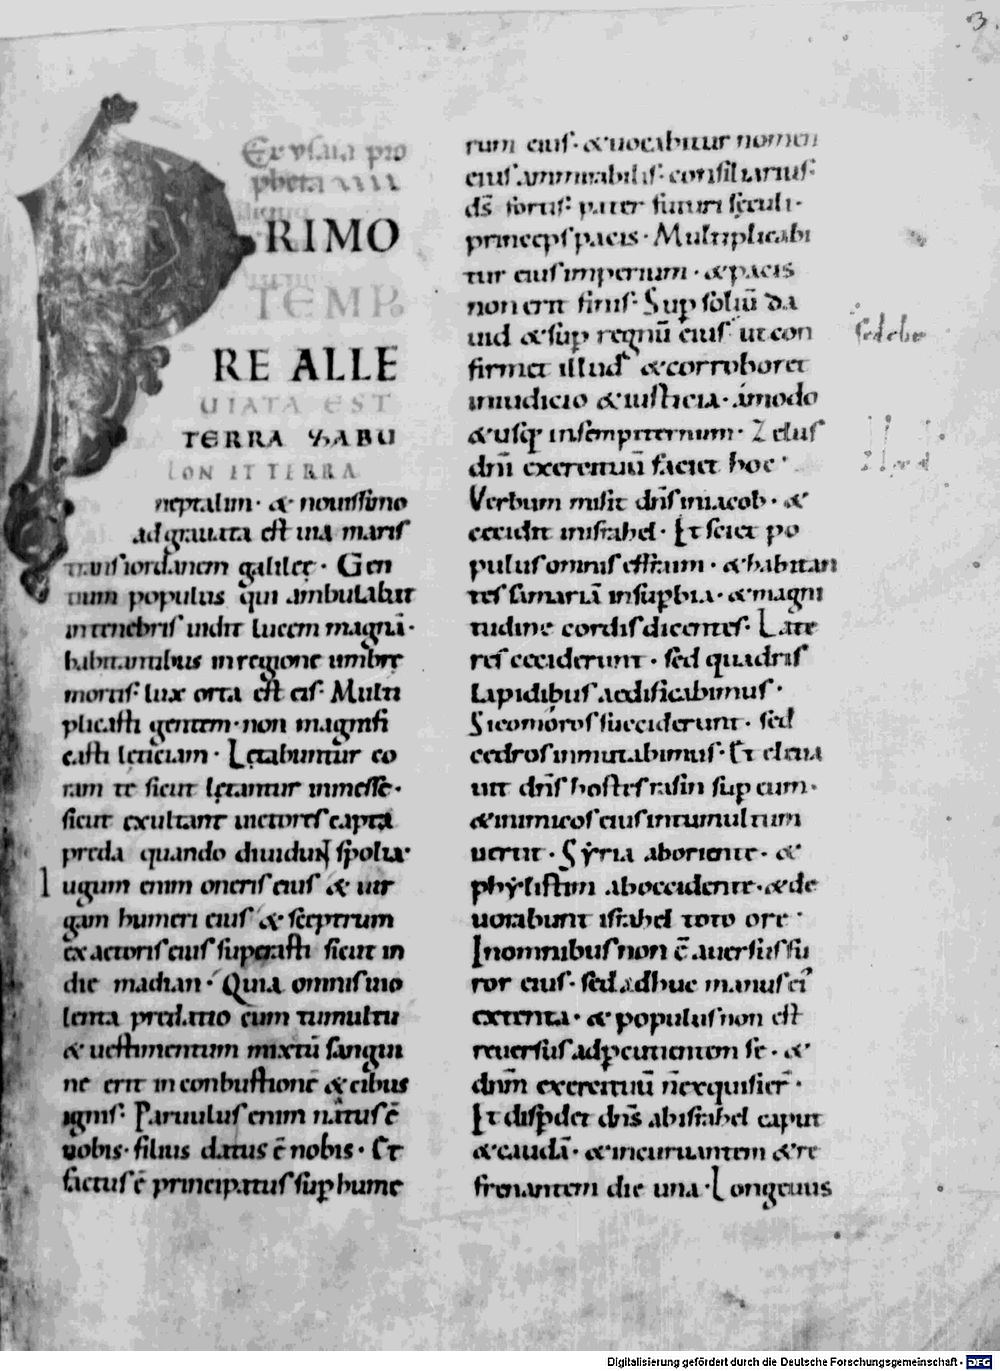 3.
Ex ysaia pro
pheta
PRIMO
TEMPO
RE ALLE
UIATA EST
TERRA ZABU
LON ET TERRA
neptalim · & nouissimo
adgrauata est uia maris
transiordanem galileę · Gen
tium populus qui ambulabat
intenebris uidit lucem magnā ·
habitantibus inregione umbrę
mortis · lux orta est eis · Multi
plicasti gentem · non magnifi
casti lętitiam · Lętabuntur co
ram te sicut lętantur inmesse ·
sicut exultant uictores capta
preda quando diuidunt spolia ·
Iugum enim oneris eius & uir
gam humeri eius & sceptrum
exactoris eius superasti sicut in
die madian · Quia omnis uio
lenta predatio cum tumultu
& uestimentum mixtū sangui
ne erit inconbustionē & cibus
ignis · Paruulus enim natus ē
nobis · filius datus ē nobis · Et
factus ē principatus sup hume
rum eius · & uocabitur nomen
eius ammirabilis · consiliarius ·
ds̄ fortis · pater futuri sęculi ·
princeps pacis · Multiplicabi
tur eius imperium · & pacis
non erit finis · Sup soliū da
uid & sup regnū eius ut con
firmet illud & corroboret
iniudicio & iusticia · ámodo
& usq; insempiternum · Zelus
dn̄i exercituū faciet hoc ·
Verbum misit dn̄s iniacob · &
cecidit inisrahel · Et sciet po
pulus omnis effraim · & habitan
tes samariā insupbia · & magni
tudine cordis dicentes · Late
res ceciderunt · sed quadris
lapidibus aedificabimus ·
Sicomóros succiderunt · sed
cedros inmutabimus · Et eleua
uit dn̄s hostes rasin sup eum ·
& inimicos eius intumultum
uertit · Syria aboriente · &
phylistim aboccidente · & de
uorabunt israhel toto ore ·
Inomnibus non ē auersus fu
ror eius · sed adhuc manus ei'
extenta · & populus non est
reuersus adpcutientem se · &
dn̄m exercituū n̄ exquisier̄ ·
Et dispdet dn̄s abisrahel caput
& caudā · & incuruantem & re
frenantem die una · Longeuus
Digitalisierung gefördert durch die Deutsche Forschungsgemeinschaft - DFG